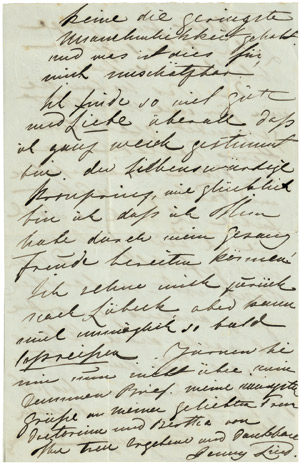 keine die geringste
Unannehmlichkeit gehabt
und was ist dies für
mich unschätzbar
Ich finde so viel Güte
und Liebe überall daß
ich ganz weich gestimmt
bin. der Liebenswürdige
Kronprinz, wie glücklich
bin ich daß ich Ihm
habe durch mein Gesang
Freude bereiten können!
Ich sehne mich zurück
nach Lübeck, aber kann
unmöglich so bald
abreisen. Zürnen Sie
mir nun nicht über mein
dummen Brief. meine
Grüße an meine geliebten Frau
und Bertha von
Ihre treu ergebene und dankbare
Jenny Lind.